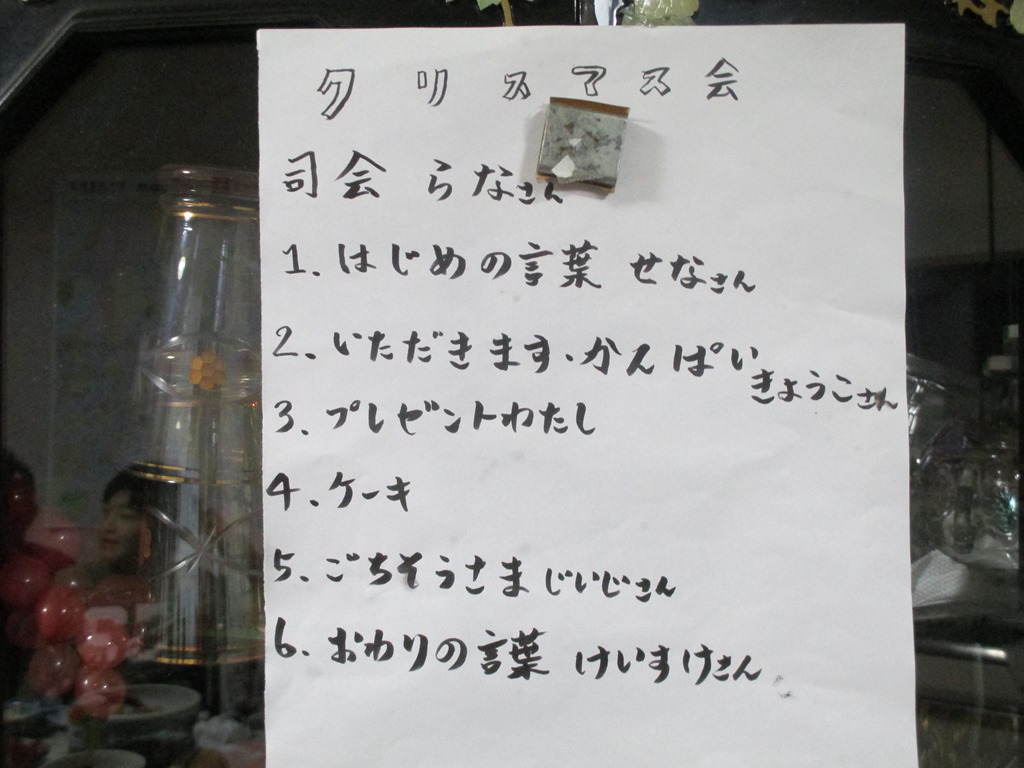 クリスマス会
司会 らなさん
1. はじめの言葉 せなさん
2. いただきます・かんぱい きょうこさん
3. プレゼントわたし
4. ケーキ
5. ごちそうさま じいじさん
6. おわりの言葉 けいすけさん